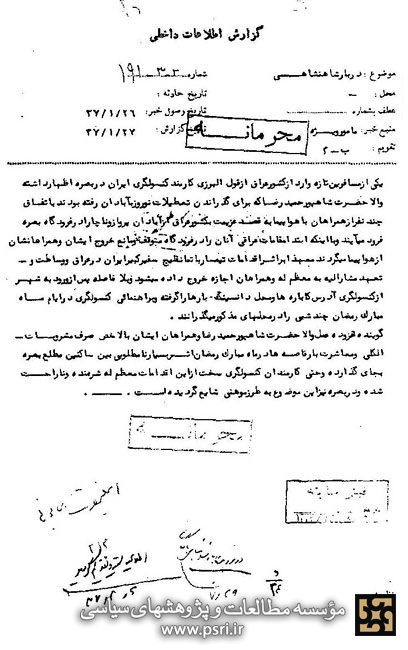 گزارش اطلاعات داخلی
موضوع : دربار شاهنشاهی
شماره ۱۹۱-۳۰۲
محل : ـ
تاریخ حادثه :
عطف بشماره :
تاریخ وصول خبر : ۳۷/۱/۲۶
منبع خبر : مامور ویژه
تاریخ گزارش : ۳۷/۱/۲۷
تقویم : ب-۲
محرمانه
یکی از مسافرین تازه وارد از کشور عراق از قول البرزی کارمند کنسولگری ایران در بصره اظهار داشته
والا حضرت شاهپور حمید رضا که برای گذراندن تعطیلات نوروز بآبادان رفته بودند باتفاق
چند نفر از همراهان با هواپیما به قصد عزیمت بکشور عراق از آبادان پرواز و ناچار در فرودگاه بصره
فرود میآیند و با اینکه ابتدا مقامات عراقی آنان را در فرودگاه متوقف و مانع خروج ایشان و همراهانشان
از هواپیما میگردند معهذا بر اثر اقدامات تیمسار باتمانقلیچ سفیر کبیر ایران در عراق و وساطت و -
تعهد مشارالیه به معظم له و همراهان اجازه خروج داده میشود و بلا فاصله پس از ورود به شهر
از کنسولگری آدرس کاباره ها و محل دانسینگ - بارها را گرفته و براهنمائی کنسولگری در ایام ماه
مبارک رمضان چند شبی را در محلهای مذکور میگذرانند .
گوینده افزوده عمل والا حضرت شاهپور حمید رضا و همراهان ایشان بالاخص صرف مشروبات -
الکلی و معاشرت با رقاصه ها در ماه مبارک رمضان اثر بسیار نامطلوبی بین ساکنین مطلع بصره
بجای گذارده و حتی کارمندان کنسولگری سخت از این اقدامات معظم له شرمنده و ناراحت
شده و در بصره نیز این موضوع به طرز موهنی شایع گردیده است .
محرمانه
مؤسسه مطالعات و پژوهشهای سیاسی
www.psri.ir